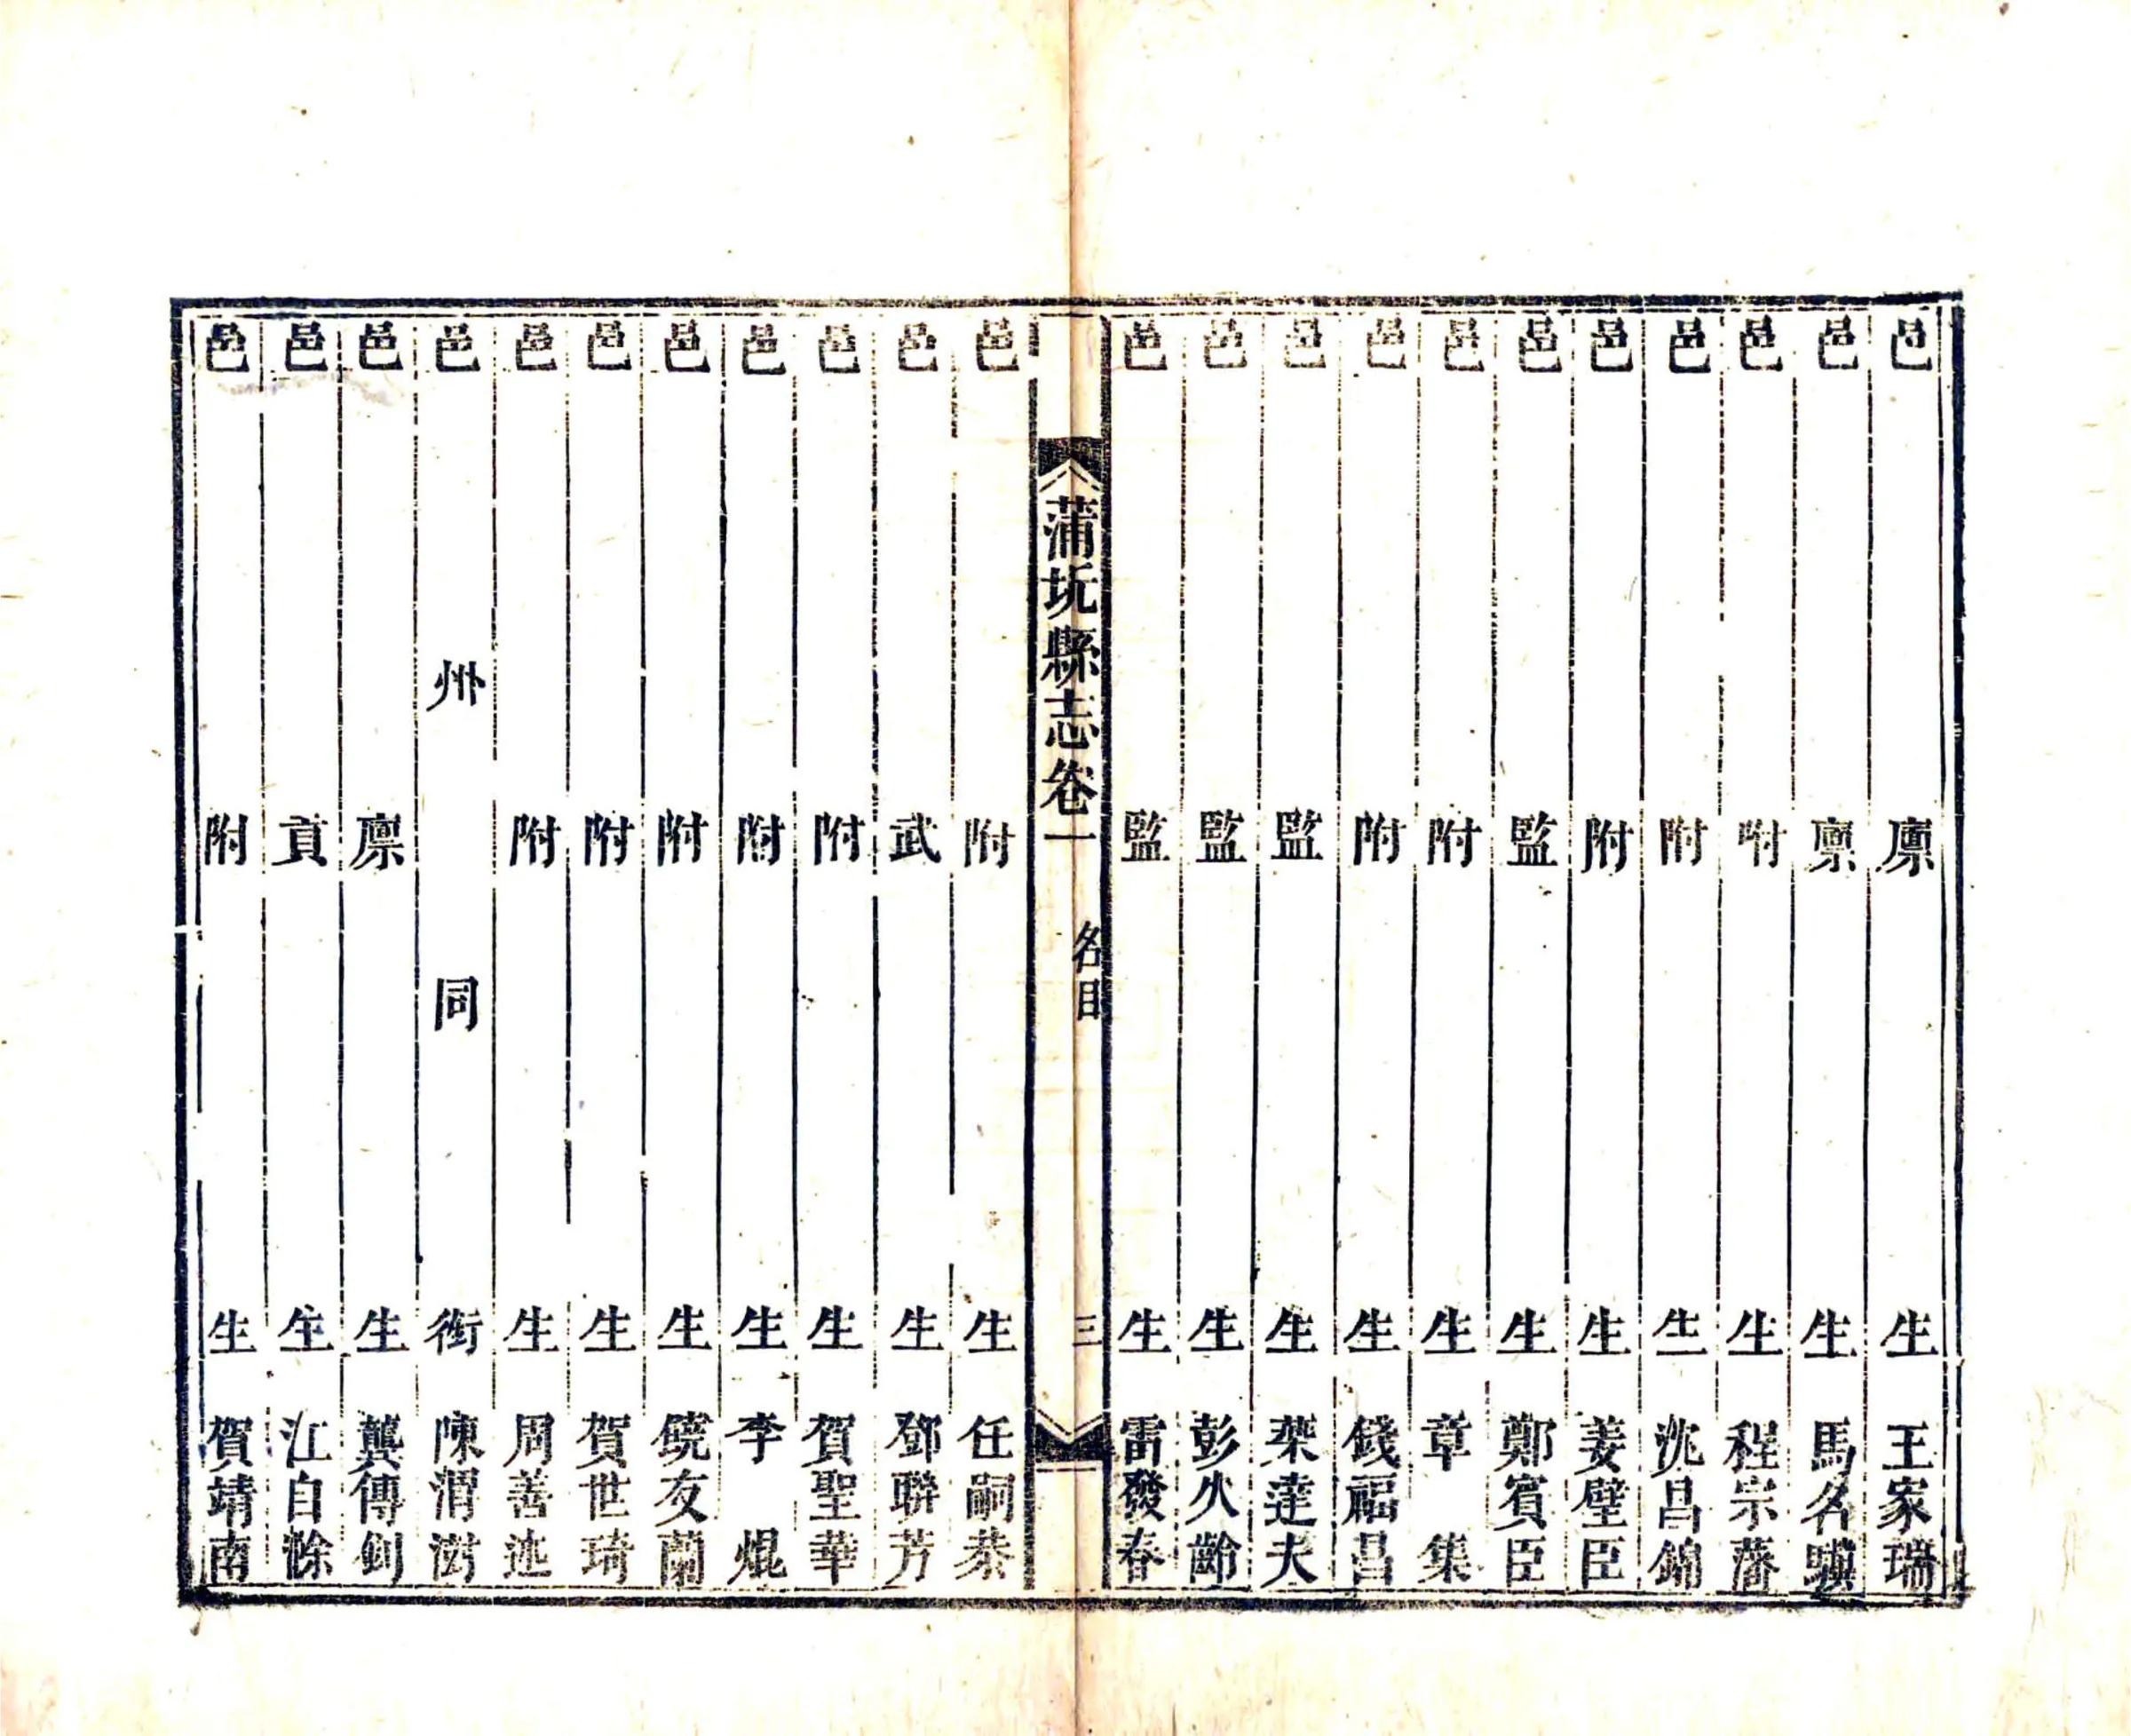 邑廪生王家瑞
邑廪生馬名驥
邑附生程宗藩
邑附生沈昌錦
邑附生姜璧臣
邑監生鄭賓臣
邑附生章集
邑附生錢福昌
邑監生葉達夫
邑監生彭火齡
邑監生雷發春
蒲圻縣志卷一 名目 三
邑附生任嗣恭
邑武生鄧聯芳
邑附生賀聖華
邑附生李焜
邑附生饒友蘭
邑附生賀世琦
邑附生周善述
邑州同銜陳渭澍
邑廪生龔傳釗
邑貢生江自滁
邑附生賀靖南